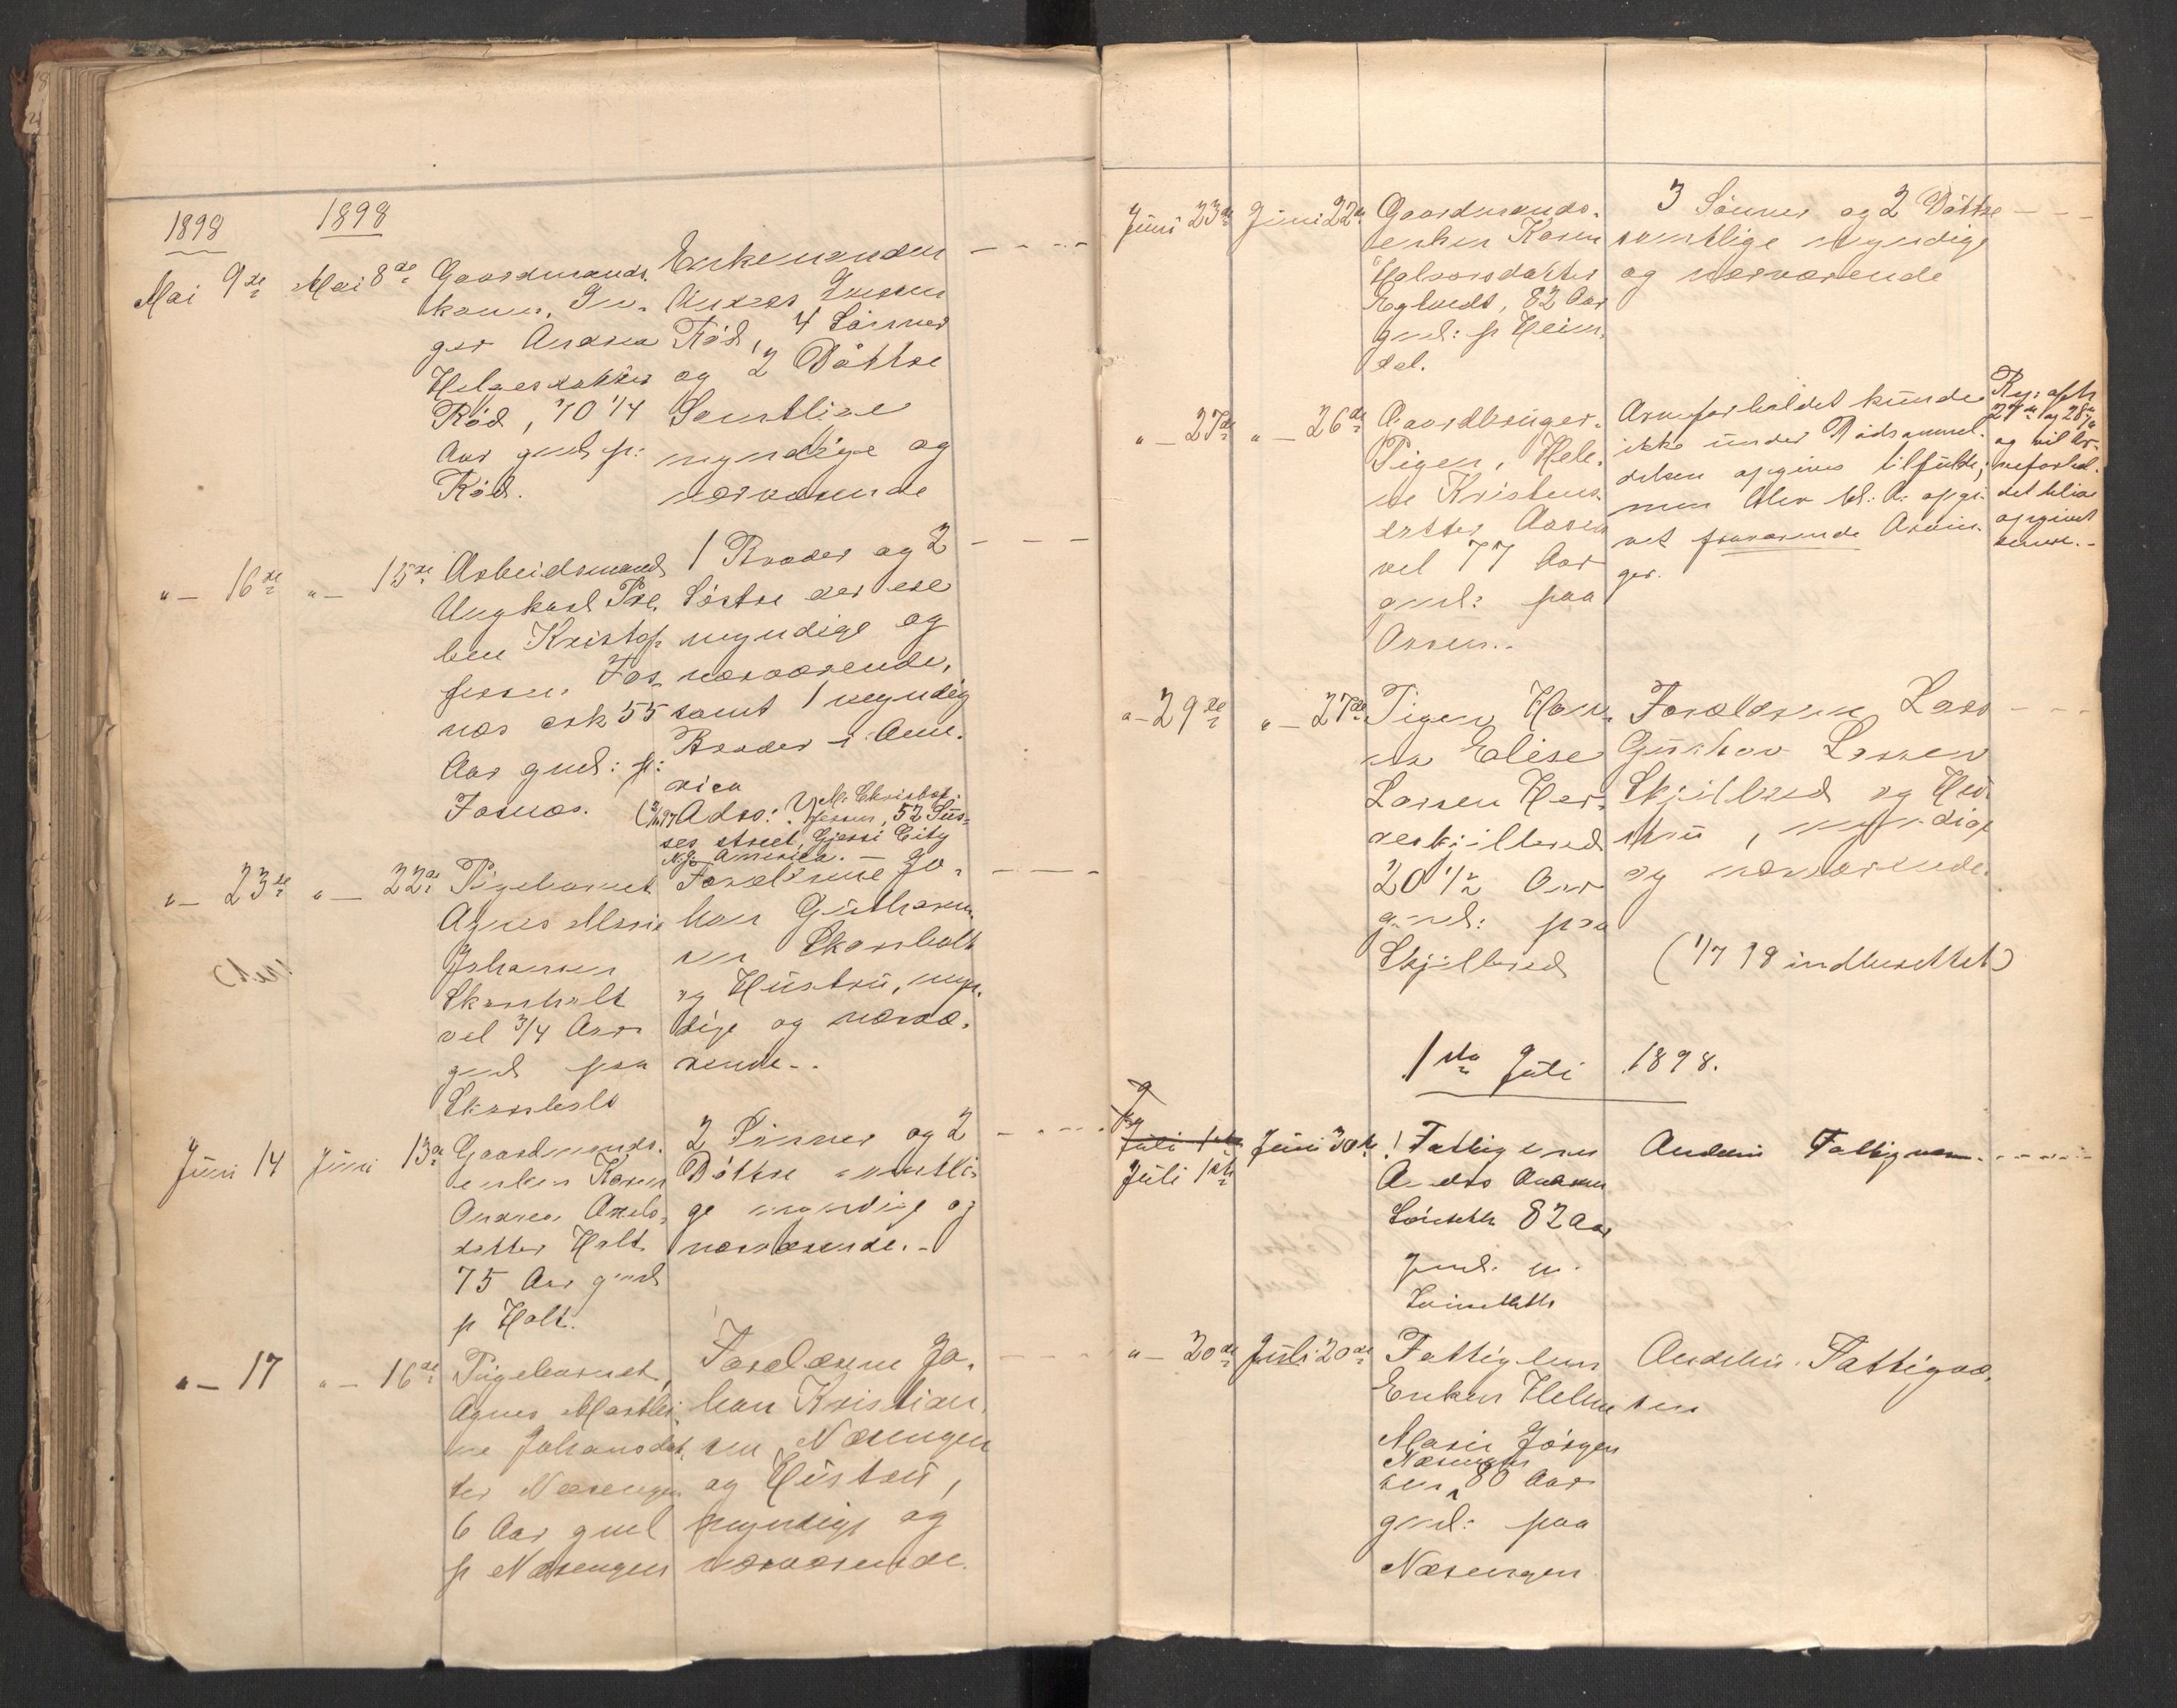 1898
1898
Mai 9de
Mai 8de
Gaardmands-
kone, In-
ger Andrea
Helgesdatter
Röd, 70 1/4
Aar gml p:
Röd.
Enkemanden
Anders
Röd, 4 Sönner
og 2 Döttre
Samtlige
myndige og
nærværende
" - 16de
" - 15de
Arbeidsmand
Ungkarl Pre-
ben Kristof-
fersen Fos-
næs ank 55
Aar gml: p:
Fosnæs.
1 Broder og 2
Söstre der ere
myndige og
nærværende,
samt 1 myndig
Broder i Ame-
rica
Adrs: M. Christof-
fersen, 52 Sus-
ses street, Gjersi City
N.J. America. -
" - 23de
" - 22de
Pigebarnet
Agnes Marie
Johansen
Skarsholt
vel 3/4 Aar
gml paa
Skarsholt
Forældrene Jo-
han
Skarsholt
og Hustru, myn-
dige og nærvæ-
rende..
Juni 14
Juni 13de
Gaardmands-
enken Karen
Andrea Axels-
datter Holt
75 Aar gml
p Holt.
2 Sönner og 2
Döttre samtli-
ge myndige og
nærværende. -
" - 17
" - 16de
Pigebarnet,
Agnes Mathil-
ne Johansdat-
ter Næsengen
6 Aar gml
p Næsengen
Forældrene Jo-
han Kristian-
sen Næsengen
og Hustru,
myndige og
nærværende.
Juni 23de
Juni 22de
Gaardmands-
enken Karen
Halvorsdatter
82 Aar
gml: p Heim-
dal.
3 Sönner og 2 Döttre
samtlige myndige
og nærværende
" - 27de
" - 26de
Gaardbruger-
Pigen, Hele-
ne Kristens-
datter Aasen
vel 77 Aar
gml: paa
Aasen..
Arveforholdet kunde
ikke under Dödsanmel-
delsen opgives tilfulde,
men blev bl: A: opgi-
vet fraværende Arvin-
ger.
og vil Ar-
veforhol-
det blive
opgivet
senere. -
" - 29de
" - 27de
Pigen Han-
na Elise
Larsen Her-
reskjilbred
20 1/2 Aar
gml: paa
Skjilbred
Forældrene Lars
Gustav Larsen
Skjilbred og Hu-
stru, myndige
og nærværende.
(1/7 98 indberettet)
1ste Juli 1898.
Juli 1ste
Juli 1ste
Juni 30te
Fattiglem
Anders Andersen
82 Aar
gml: p.
Anden: Fattigvæsen
" - 20de
Juli 20de
Fattiglem
Enken Helene
Marie Jörgen
Næsengen
sen, 80 Aar
gml: paa
Næsengen
Anden: Fattigvæ-
sen